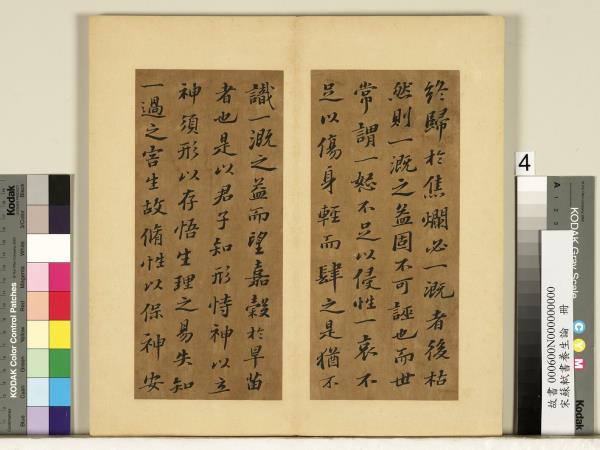 終歸於焦爛必一溉者後枯
然則一溉之益固不可誣也而世
常謂一怒不足以侵性一哀不
足以傷身輕而肆之是猶不
識一溉之益而望嘉穀於旱苗
者也是以君子知形恃神以立
神須形以存悟生理之易失知
一過之害生故脩性以保神安
4
KODAK Color Control Patches
Kodak
Blue
Cyan
Green
Yellow
Red
Magenta
White
3/Color
Black
KODAK Gray Scale
A 1 2
C Y M
Kodak
故書 000600N000000000
宋蘇軾書養生論 冊